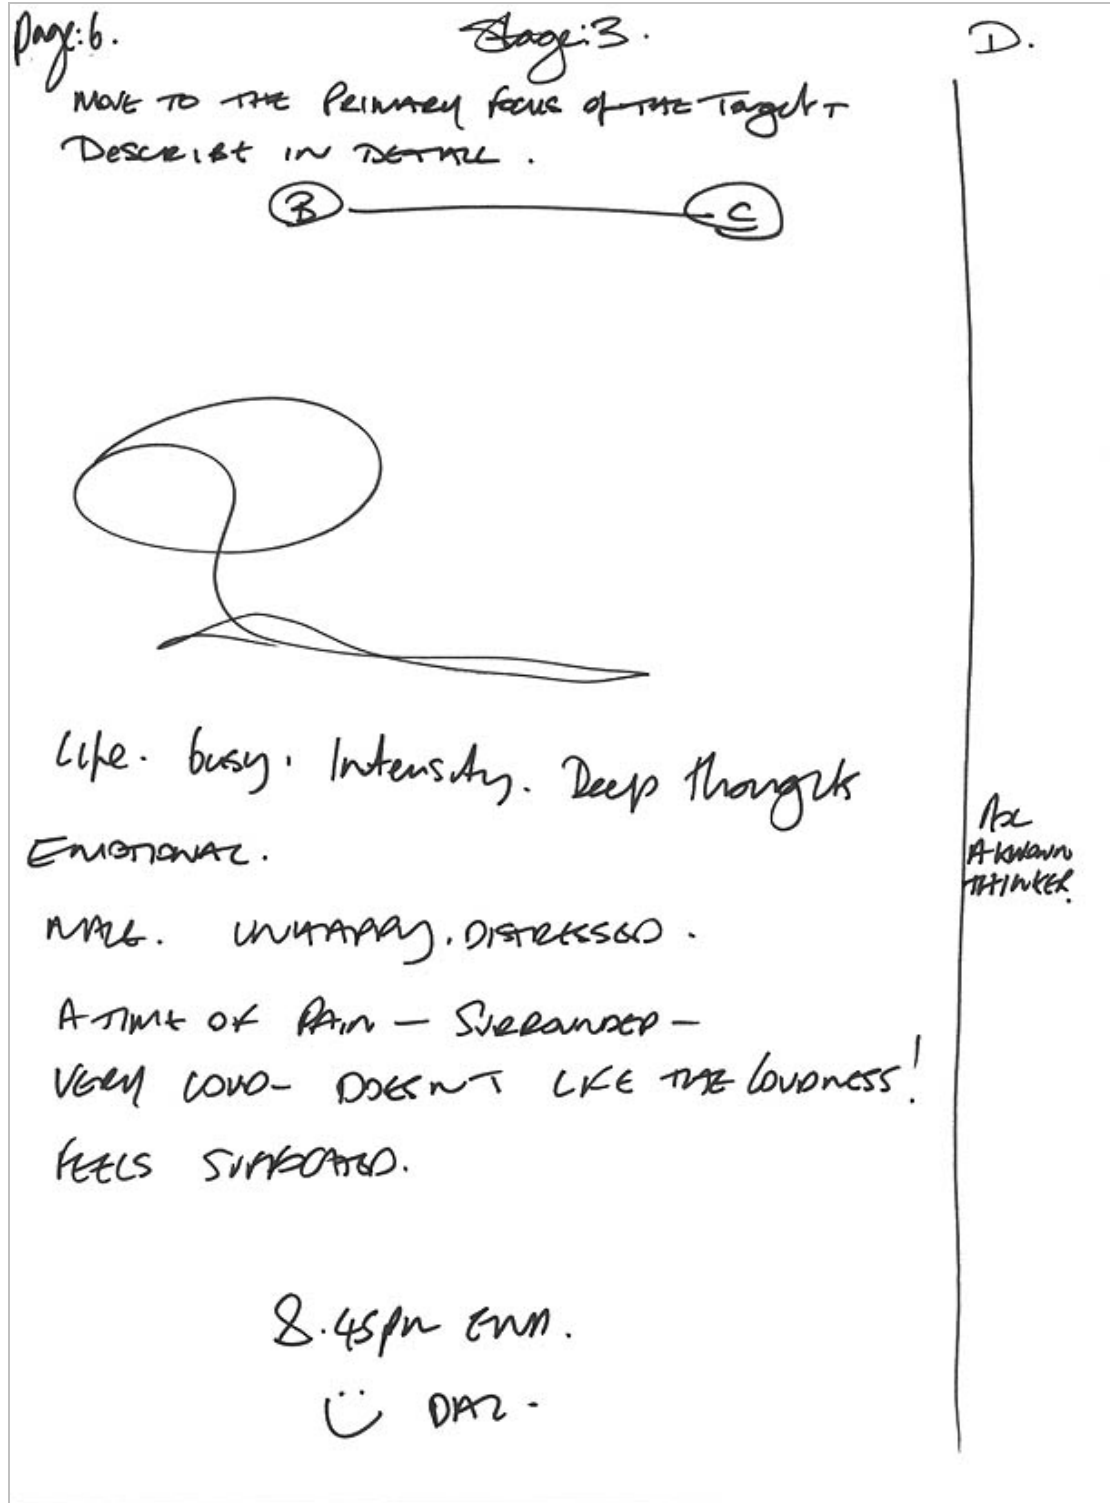 Page: 6.
Stage: 3.
D.
MOVE TO THE PRIMARY FOCUS of THE Target +
DESCRIBE IN DETAIL.
B
C
Life. busy. Intensity. Deep thoughts
EMOTIONAL.
A KNOWN
THINKER.
MALE. UNHAPPY. DISTRESSED.
A TIME OF PAIN - SURROUNDED -
VERY LOUD - DOESN'T LIKE THE LOUDNESS!
FEELS SUFFOCATED.
8.45pm END.
DAZ.